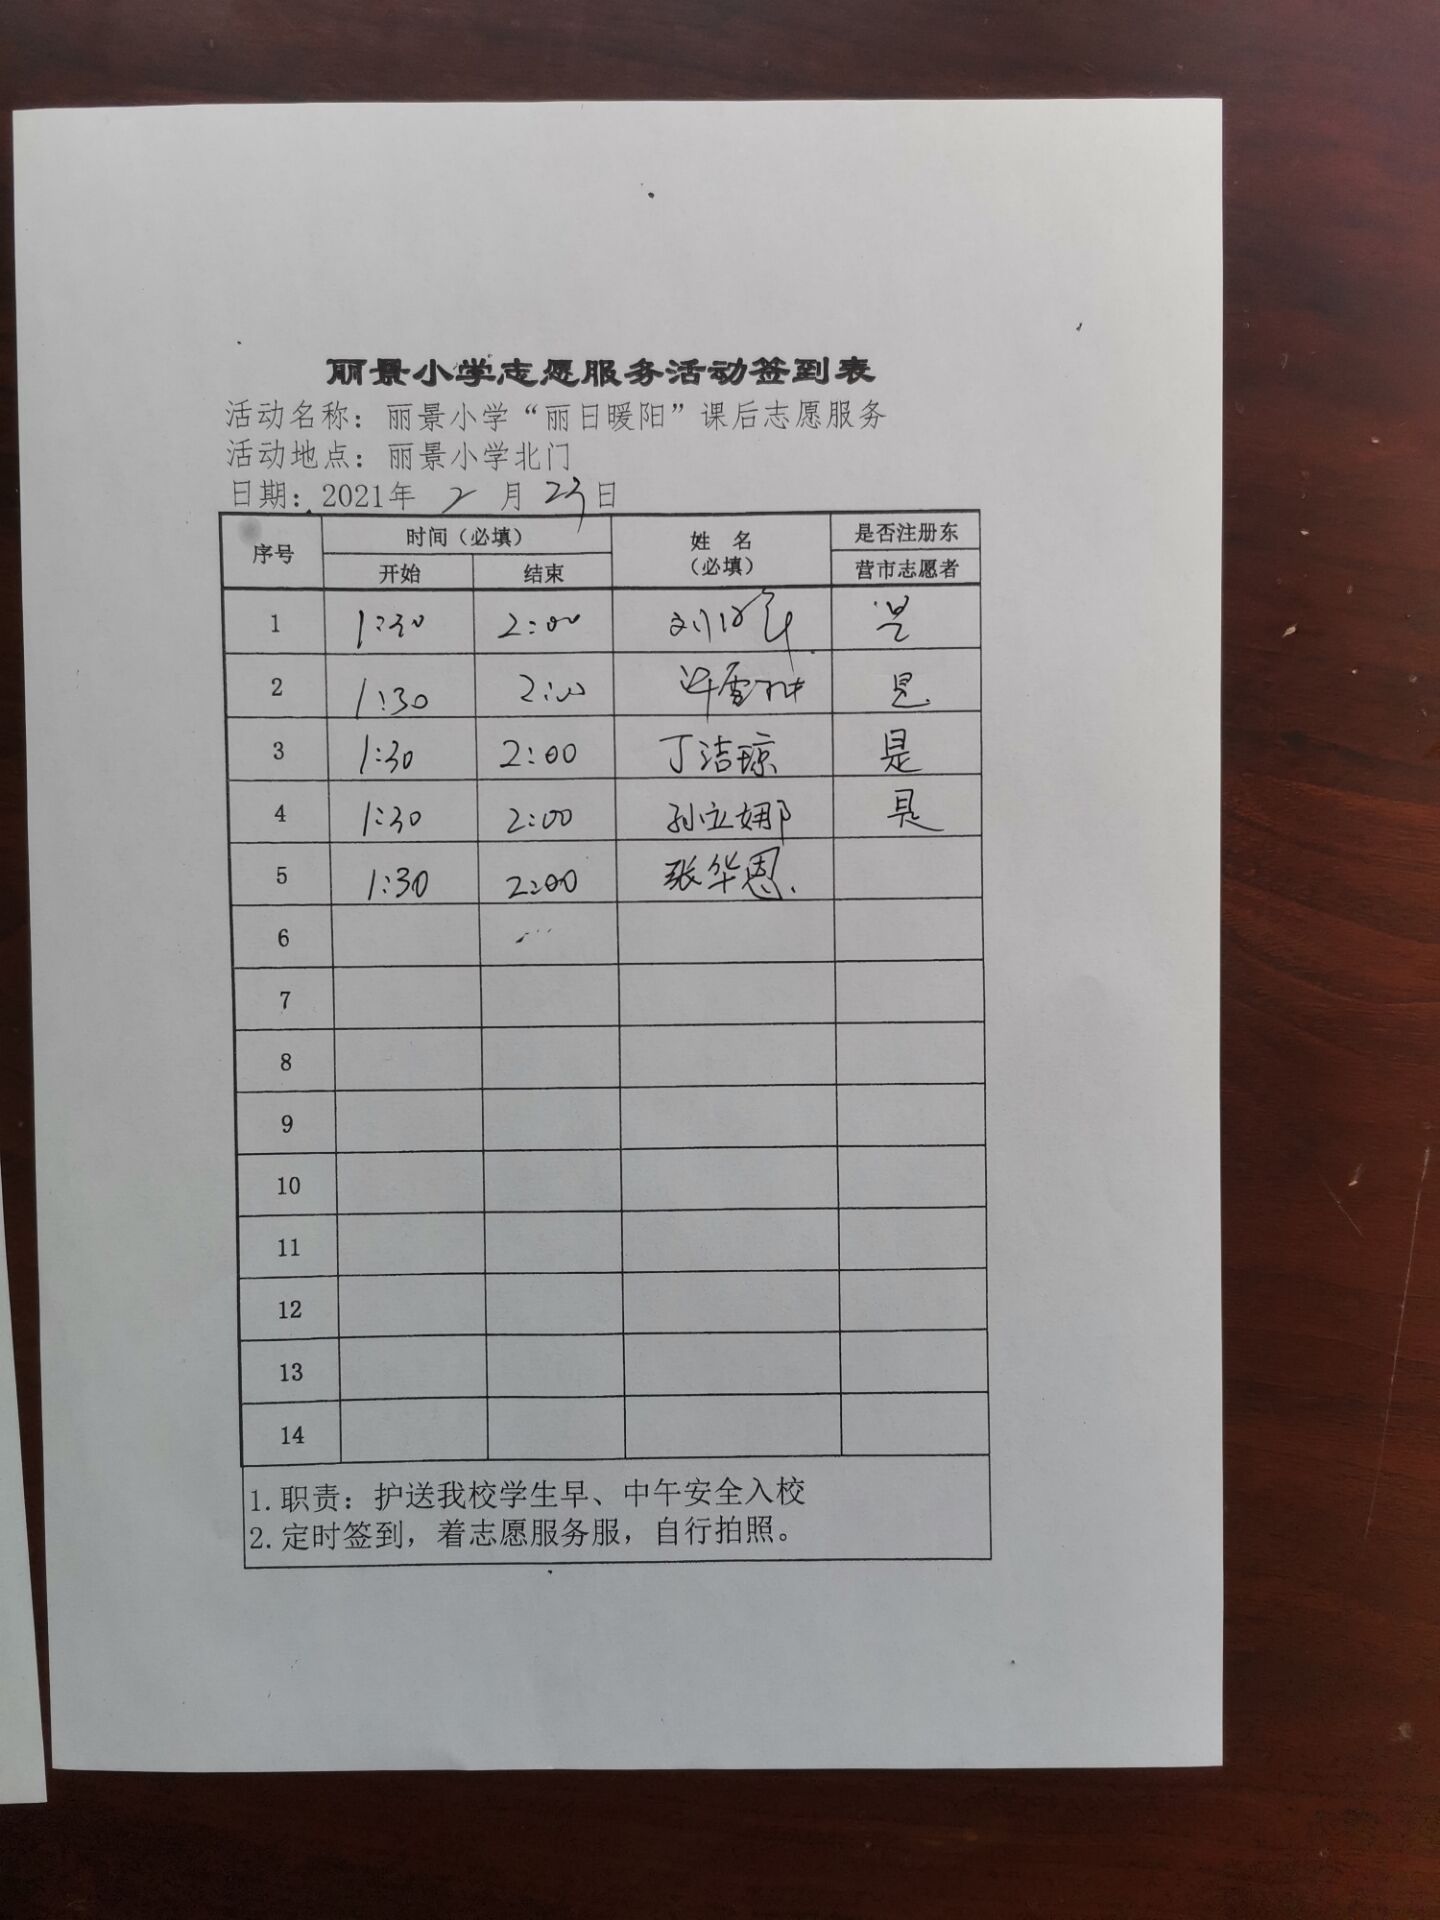 丽景小学志愿服务活动签到表
活动名称：丽景小学“丽日暖阳”课后志愿服务
活动地点：丽景小学北门
日期：2021年 2 月 23日
序号 时间（必填） 姓 名（必填） 是否注册东营市志愿者
开始 结束
1 1:30 2:00 刘 是
2 1:30 2:00 许雪 是
3 1:30 2:00 丁洁琼 是
4 1:30 2:00 孙立娜 是
5 1:30 2:00 张华恩
6
7
8
9
10
11
12
13
14
1.职责：护送我校学生早、中午安全入校
2.定时签到，着志愿服务服，自行拍照。